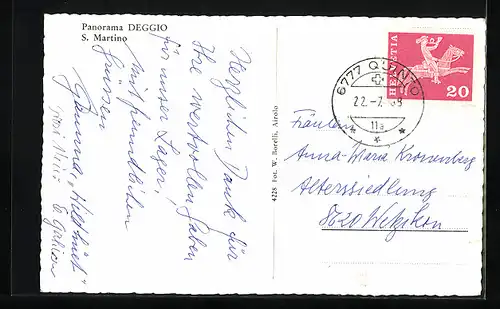 Panorama DEGGIO
S. Martino
Herzlichen Dank für
Ihre wertvollen Gaben
für unser Lager!
Mit freundlichen
Grüssen
4228 Fot. W. Borelli, Airolo
6777 QUINTO
22.-7.
11a
HELVETIA
20
Fräulein
Anna-Maria Kronenberg
Alterssiedlung
8620 Wetzikon